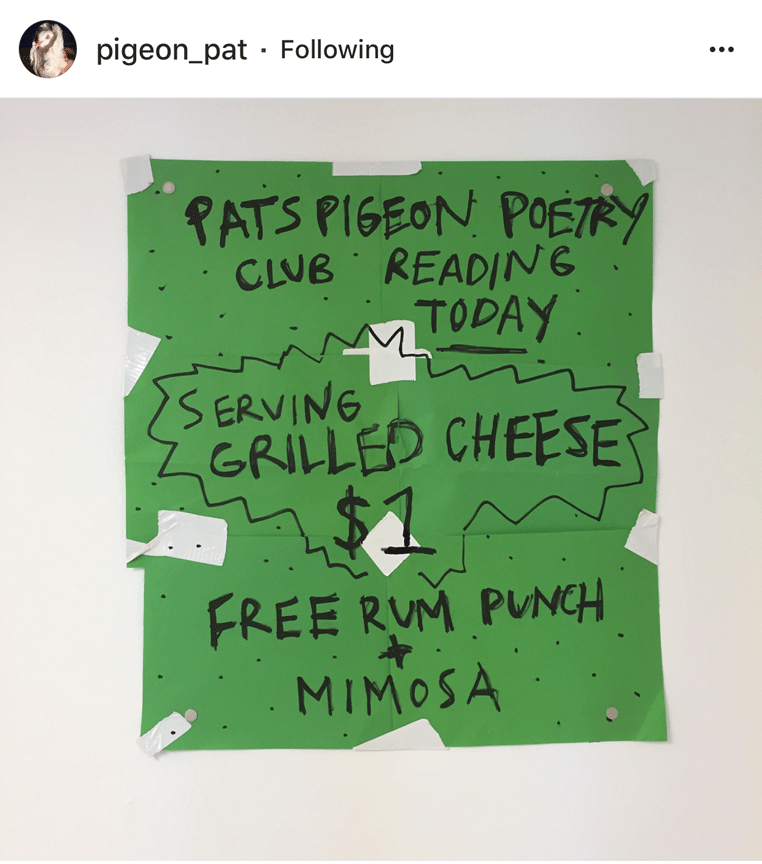 pigeon_pat · Following
PATS PIGEON POETRY
CLUB READING
TODAY
SERVING
GRILLED CHEESE
$1
FREE RUM PUNCH
+
MIMOSA